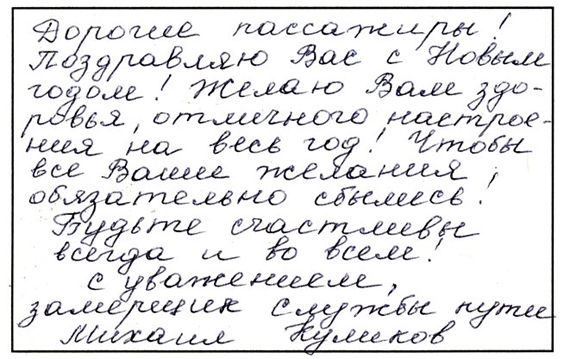 Дорогие пассажиры!
Поздравляю Вас с Новым
годом! Желаю Вам здо-
ровья, отличного настрое-
ния на весь год! Чтобы
все Ваши желания
обязательно сбылись!
Будьте счастливы
всегда и во всем!
С уважением,
замерщик службы пути
Михаил Куликов